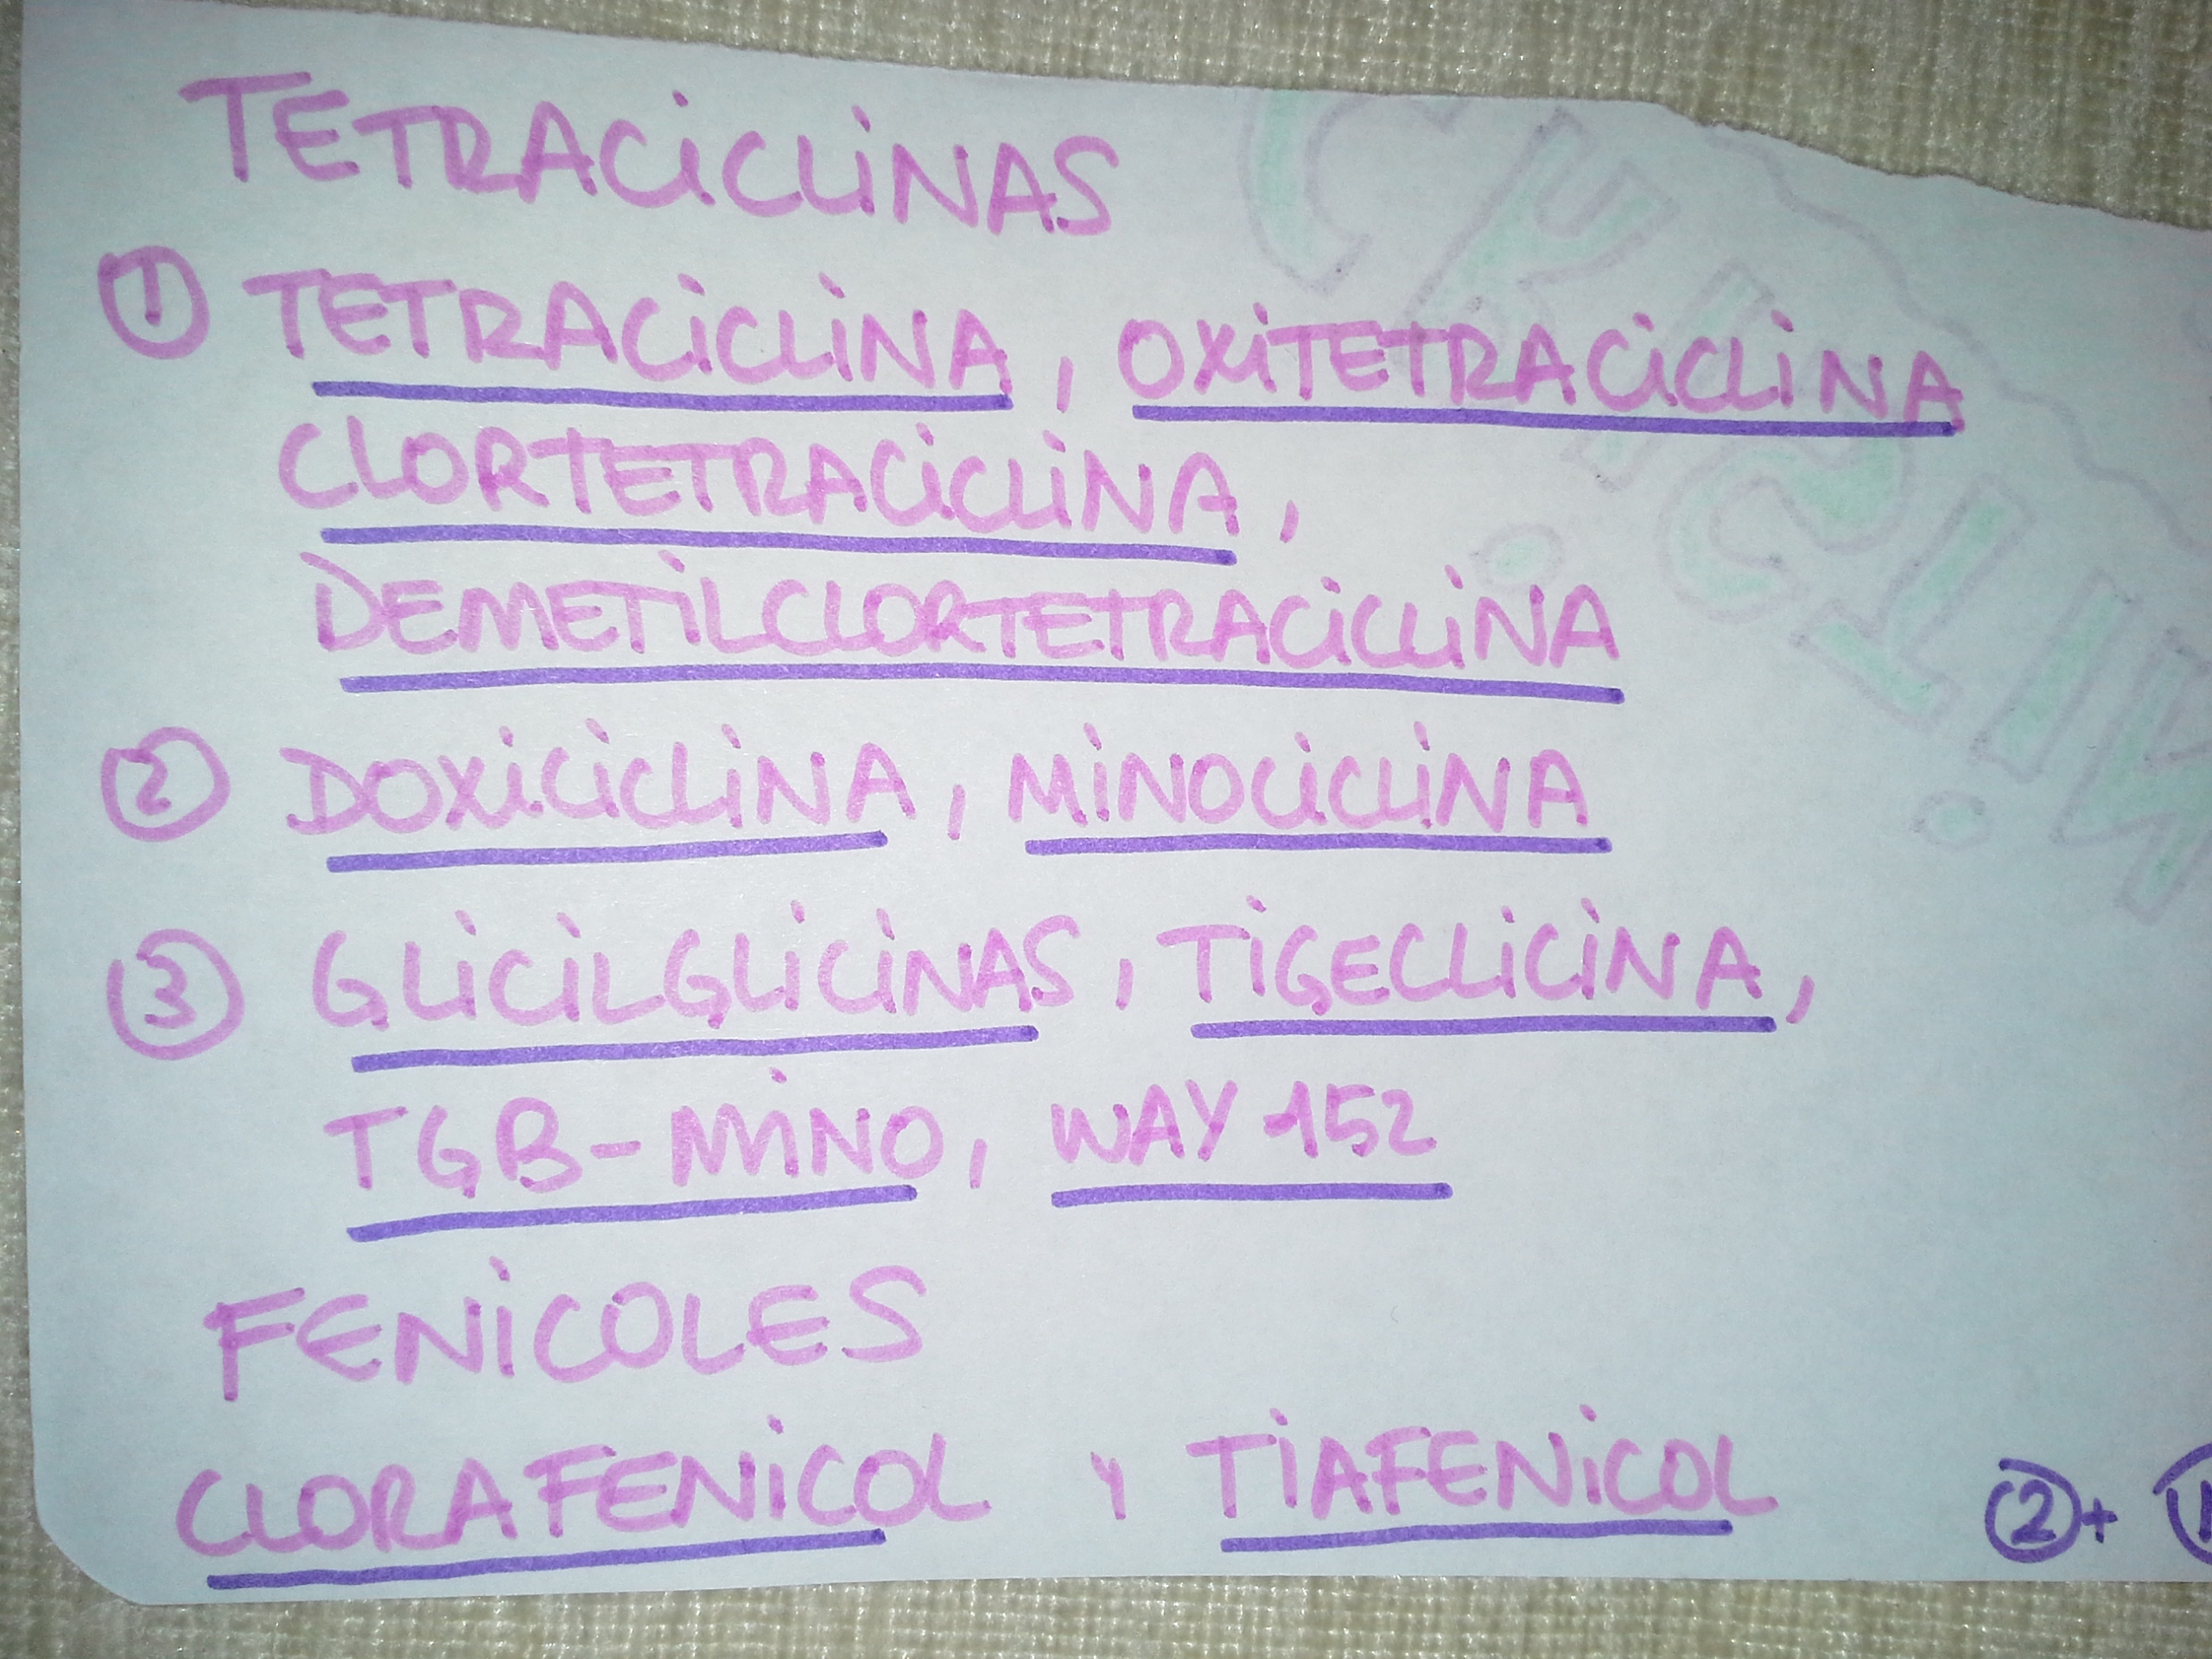 TETRACICLINAS
① TETRACICLINA, OXITETRACICLINA
CLORTETRACICLINA,
DEMETILCLORTETRACICLINA
② DOXICICLINA, MINOCICLINA
③ GLICILGLICINAS, TIGECLICINA,
TGB-MINO, WAY 152
FENICOLES
CLORAFENICOL y TIAFENICOL
②+